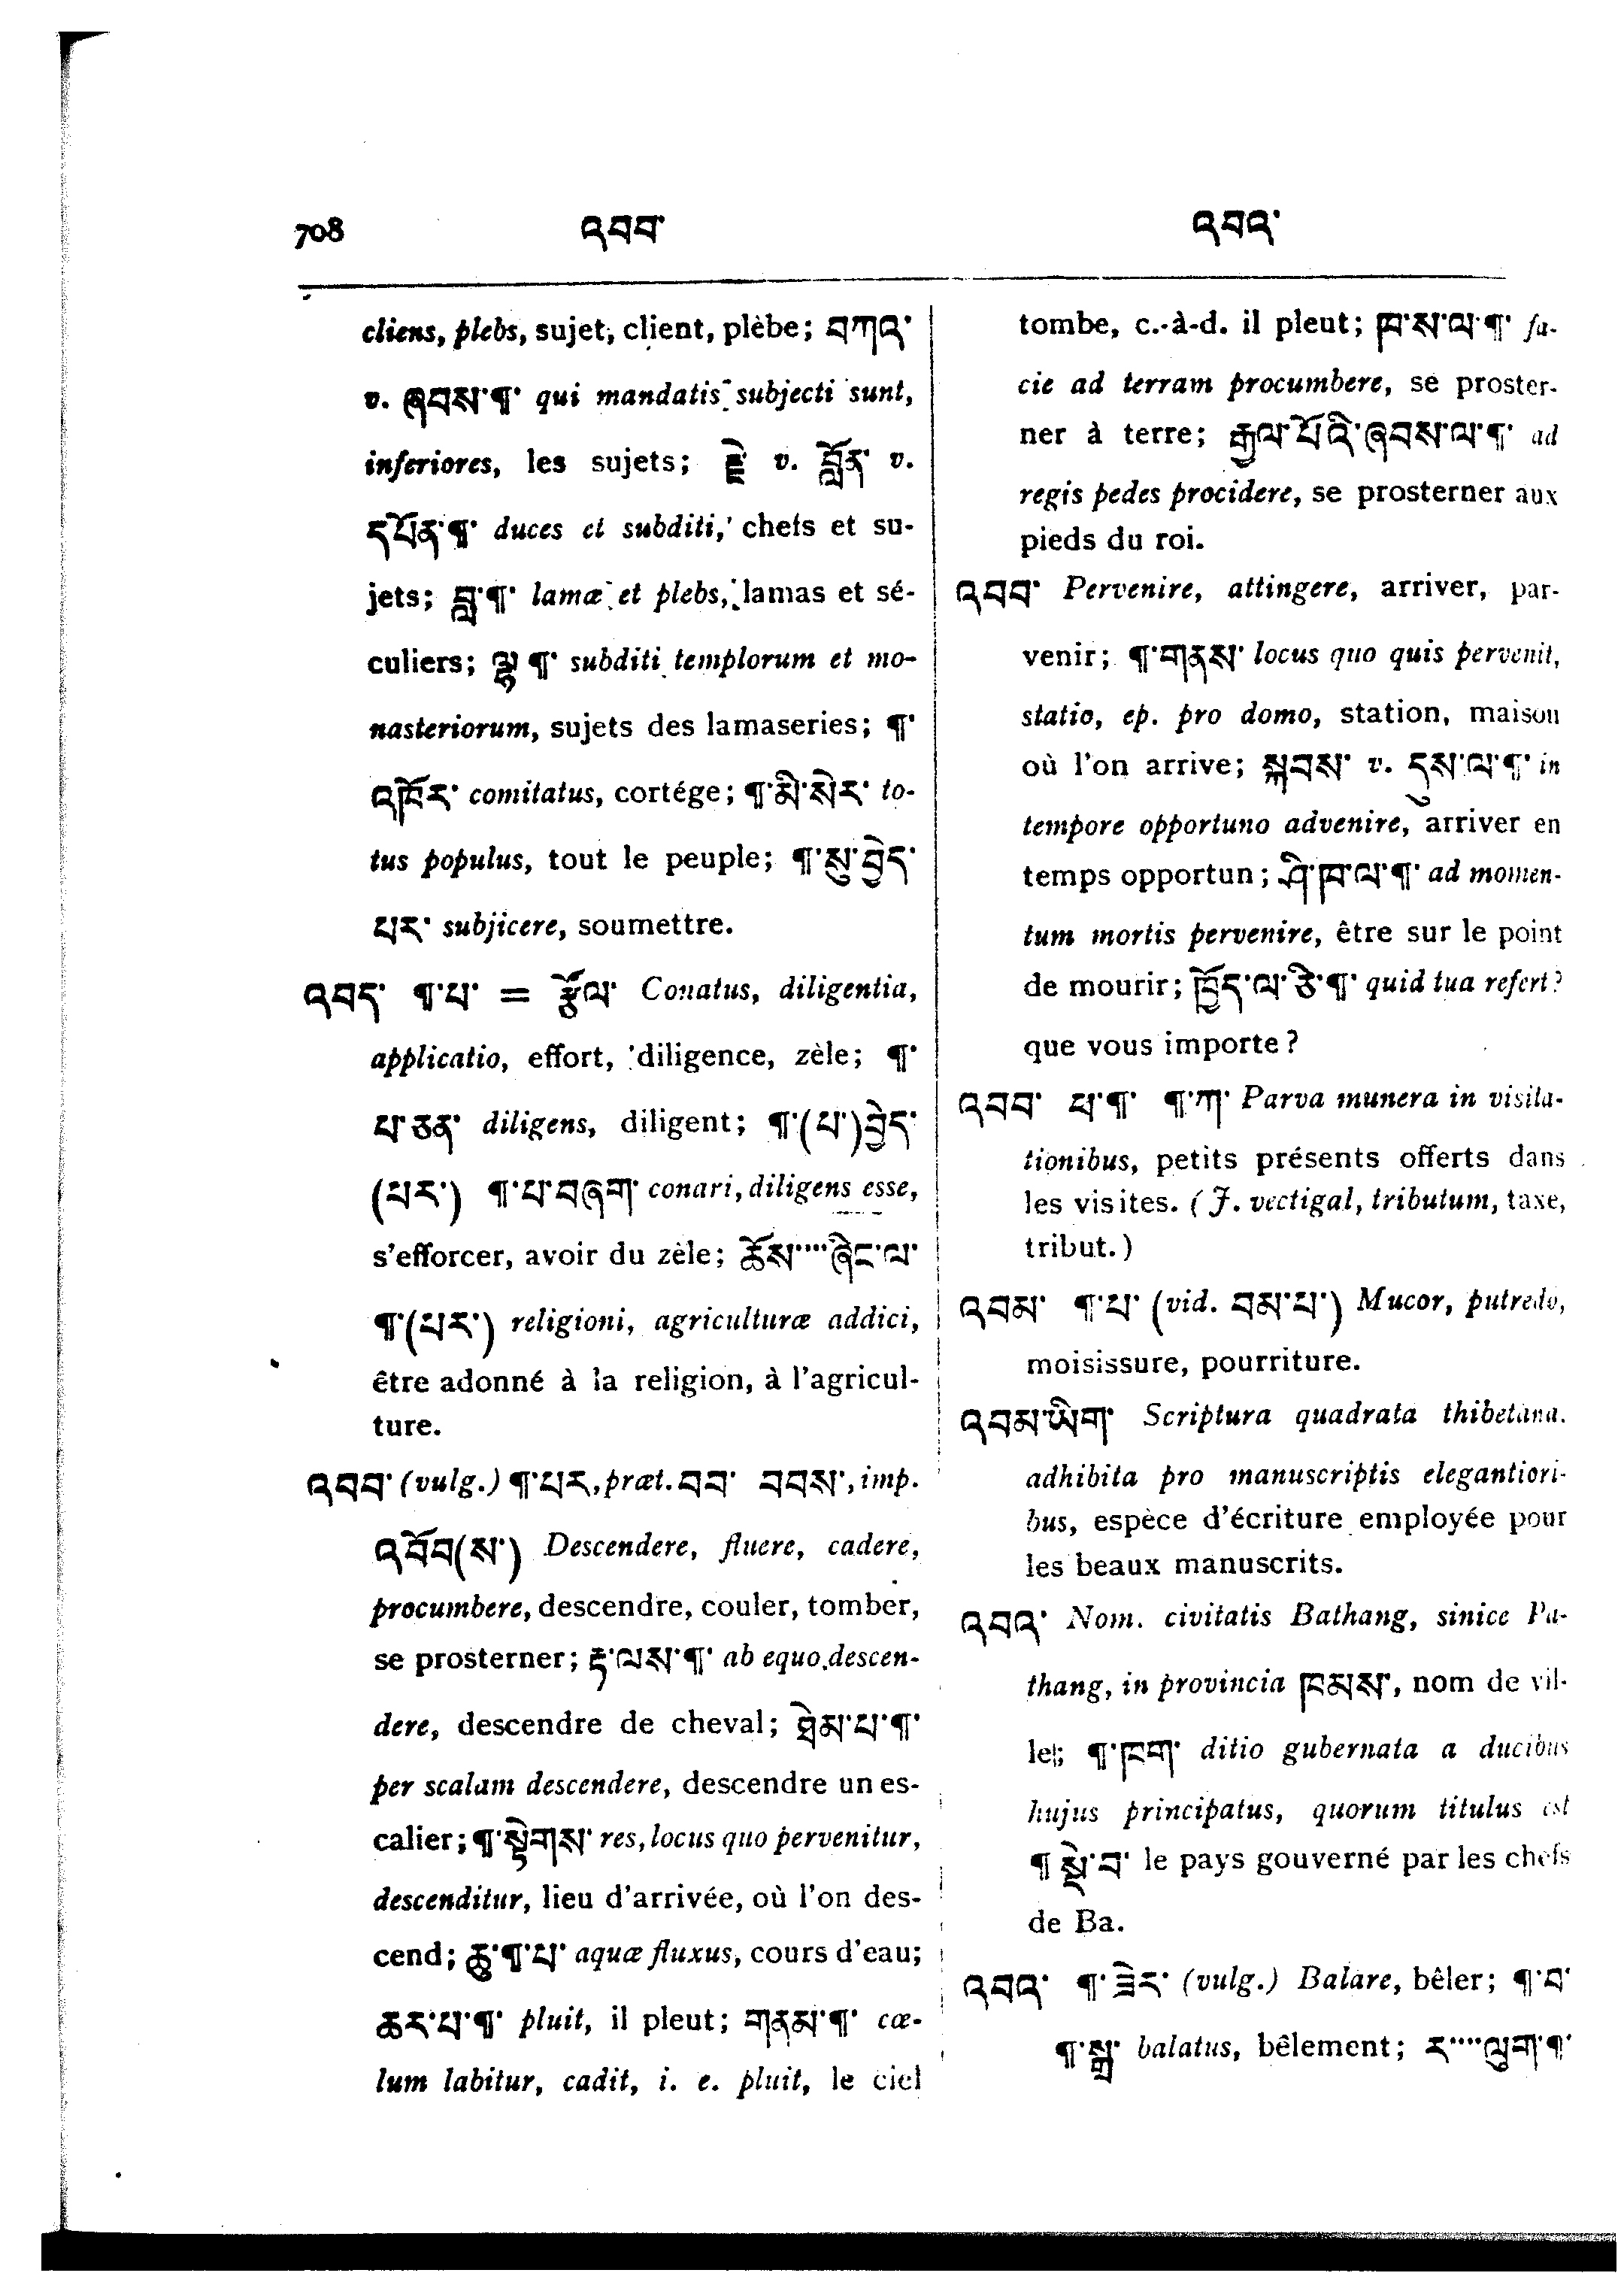 708 འབབ་ འབའ་
cliens, plebs, sujet, client, plèbe; བཀའ་
v. ཞབས་¶་ qui mandatis subjecti sunt,
inferiores, les sujets; རྗེ་ v. བློན་ v.
དཔོན་¶་ duces et subditi, chefs et su-
jets; བླ་¶་ lamæ et plebs, lamas et sé-
culiers; ལྷ ¶་ subditi templorum et mo-
nasteriorum, sujets des lamaseries; ¶་
འཁོར་ comitatus, cortége; ¶་མི་སེར་ to-
tus populus, tout le peuple; ¶་སུ་བྱེད་
པར་ subjicere, soumettre.
འབད་ ¶་པ་ = རྩོལ་ Conatus, diligentia,
applicatio, effort, diligence, zèle; ¶་
པ་ཅན་ diligens, diligent; ¶་(པ་)བྱེད་
(པར་) ¶་པ་བཞག་ conari, diligens esse,
s'efforcer, avoir du zèle; ཆོས་····ཞིང་ལ་
¶་(པར་) religioni, agriculturæ addici,
être adonné à la religion, à l'agricul-
ture.
འབབ་ (vulg.) ¶་པར, præt. བབ་ བབས་, imp.
འབོབ(ས་) Descendere, fluere, cadere,
procumbere, descendre, couler, tomber,
se prosterner; རྟ་ལས་¶་ ab equo descen-
dere, descendre de cheval; ཐེམ་པ་¶་
per scalam descendere, descendre un es-
calier; ¶་སྟེགས་ res, locus quo pervenitur,
descenditur, lieu d'arrivée, où l'on des-
cend; ཆུ་¶་པ་ aquæ fluxus, cours d'eau;
ཆར་པ་¶་ pluit, il pleut; གནམ་¶་ cœ-
lum labitur, cadit, i. e. pluit, le ciel
tombe, c.-à-d. il pleut; ཁ་ས་ལ་¶་ fa-
cie ad terram procumbere, se proster-
ner à terre; རྒྱལ་པོའི་ཞབས་ལ་¶་ ad
regis pedes procidere, se prosterner aux
pieds du roi.
འབབ་ Pervenire, attingere, arriver, par-
venir; ¶་གནས་ locus quo quis pervenit,
statio, ep. pro domo, station, maison
où l'on arrive; སྐབས་ v. དུས་ལ་¶་ in
tempore opportuno advenire, arriver en
temps opportun; ཤི་ཁ་ལ་¶་ ad momen-
tum mortis pervenire, être sur le point
de mourir; ཁྱོད་ལ་ཅི་¶་ quid tua refert?
que vous importe?
འབབ་ པ་¶་ ¶་ཀ་ Parva munera in visita-
tionibus, petits présents offerts dans
les visites. (J. vectigal, tributum, taxe,
tribut.)
འབམ་ ¶་པ་ (vid. བམ་པ་) Mucor, putredo,
moisissure, pourriture.
འབམ་ཡིག་ Scriptura quadrata thibetana.
adhibita pro manuscriptis elegantiori-
bus, espèce d'écriture employée pour
les beaux manuscrits.
འབའ་ Nom. civitatis Bathang, sinice Pa-
thang, in provincia ཁམས་, nom de vil-
le; ¶་ཁག་ ditio gubernata a ducibus
hujus principatus, quorum titulus est
¶ སྡེ་བ་ le pays gouverné par les chefs
de Ba.
འབའ་ ¶་ཟེར་ (vulg.) Balare, bêler; ¶་བ་
¶་སྒྲ་ balatus, bêlement; ར་····ལུག་¶་